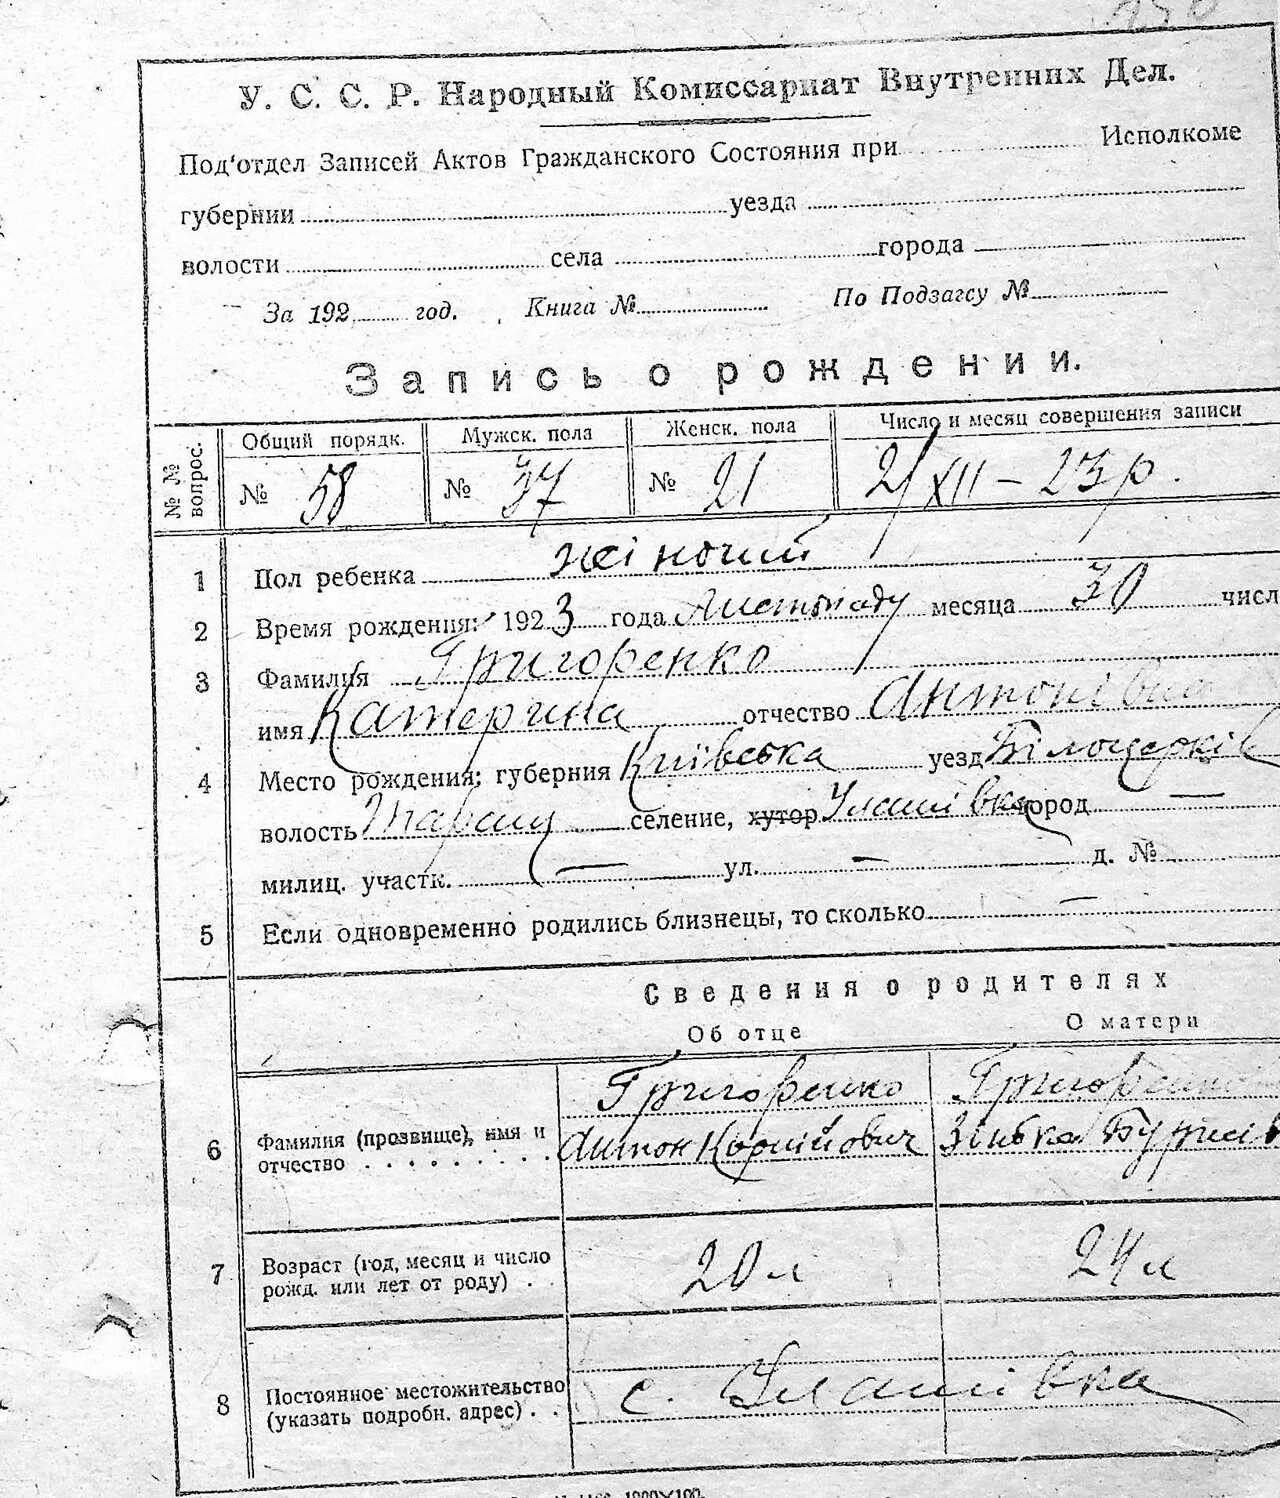 У. С. С. Р. Народный Комиссариат Внутренних Дел.
Под'отдел Записей Актов Гражданского Состояния при Исполкоме
губернии уезда
волости села города
За 192 год. Книга № По Подзагсу №
Запись о рождении.
№ № вопрос. Общий порядк. Мужск. пола Женск. пола Число и месяц совершения записи
№ 58 № 37 № 21 2/XII – 23 р.
1 Пол ребенка жіночий
2 Время рождения: 1923 года Листопаду месяца 30 числ
3 Фамилия Григоренко
имя Катерина отчество Антонівна
4 Место рождения: губерния Київська уезд Білоцерків
волость Таращ селение, хутор Улашівка город —
милиц. участк. — ул. — д. №
5 Если одновременно родились близнецы, то сколько —
Сведения о родителях
Об отце О матери
Григоренко Григоренко
6 Фамилия (прозвище), имя и Антон Корнійович Зінька
отчество
7 Возраст (год, месяц и число 20 л 24 л
рожд. или лет от роду)
8 Постоянное местожительство с. Улашівка
(указать подробн. адрес)